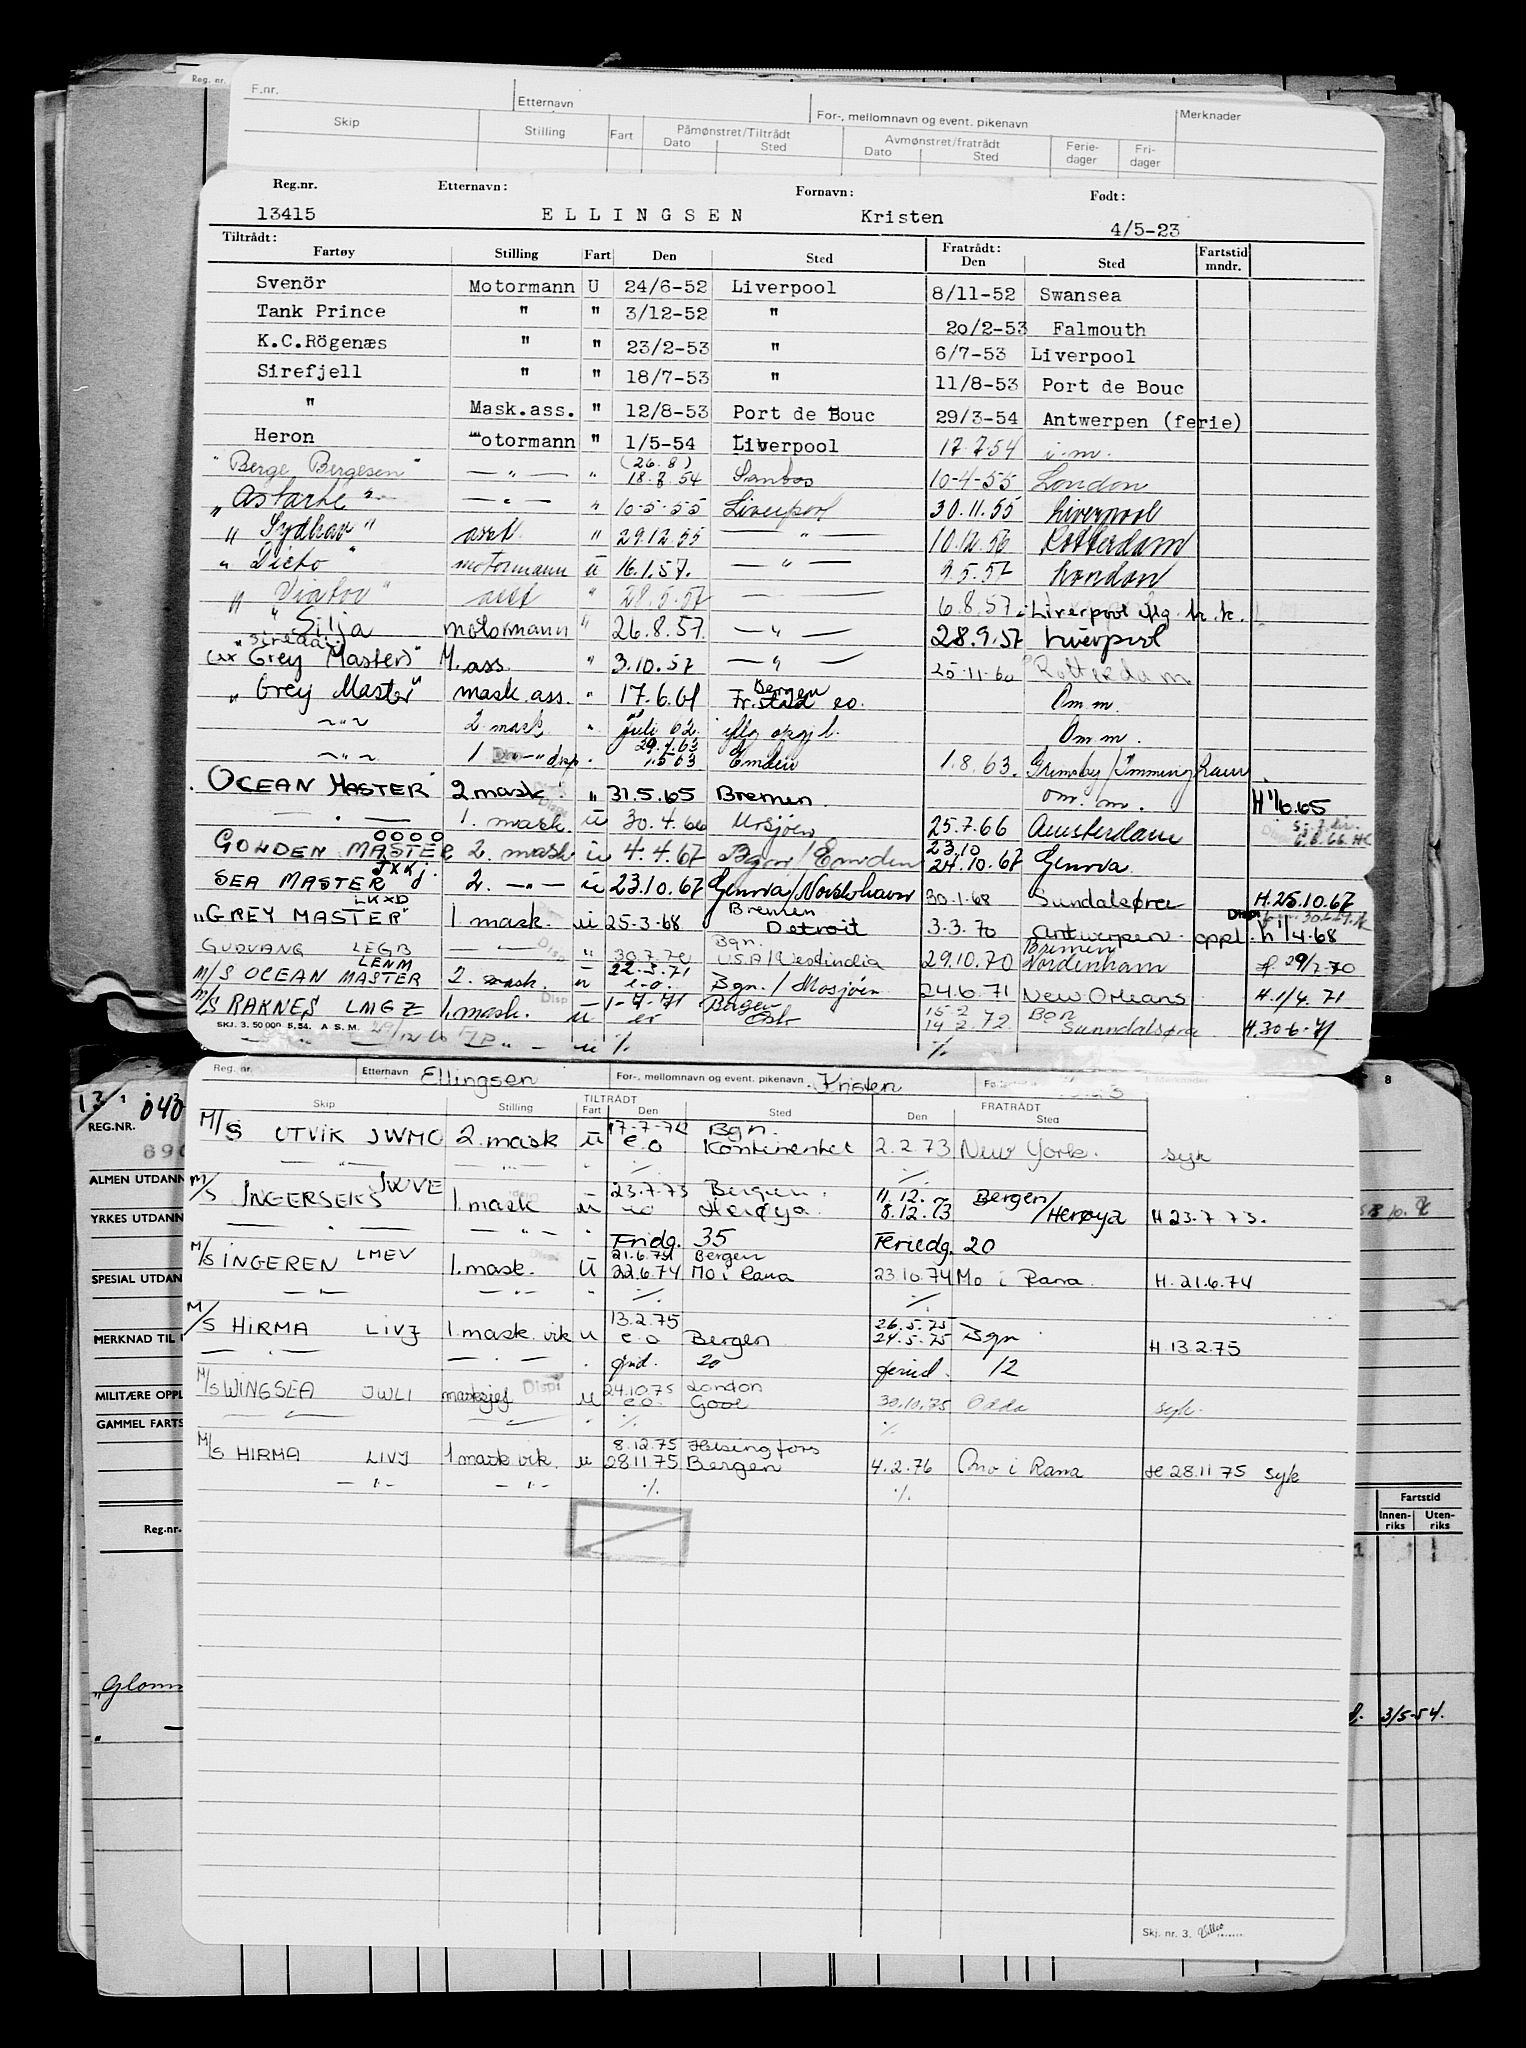 Reg. nr.
F.nr. Etternavn For-, mellomnavn og event. pikenavn Merknader
Skip Stilling Fart Påmønstret/Tiltrådt Dato Sted Avmønstret/fratrådt Dato Sted Ferie-dager Fri-dager
Reg.nr. Etternavn: Fornavn: Født:
13415 ELLINGSEN Kristen 4/5-23
Tiltrådt: Fratrådt:
Fartøy Stilling Fart Den Sted Den Sted Fartstid mndr.
Svenör Motormann U 24/6-52 Liverpool 8/11-52 Swansea
Tank Prince " " 3/12-52 " 20/2-53 Falmouth
K.C.Rögenæs " " 23/2-53 " 6/7-53 Liverpool
Sirefjell " " 18/7-53 " 11/8-53 Port de Bouc
" Mask.ass. " 12/8-53 Port de Bouc 29/3-54 Antwerpen (ferie)
Heron Motormann " 1/5-54 Liverpool 17.7.54 i.m.
"Berge Bergesen" — " — " (26.8) 18.8.54 Santos 10-4-55 London
"Astarte" — " — " 10-5-55 Liverpool 30.11.55 Liverpool
"Sydhav" asst " 29.12.55 — " — 10.12.56 Rotterdam
"Dicto" motormann ü 16.1.57. — " — 9.5.57 London
"Viator" " 28.5.57 6.8.57 Liverpool iflg. h.k.
"Silja motormann " 26.8.57. — " — 28.9.57 Liverpool
"Grey Masters" M.ass. " 3.10.57 — " — 25-11-60 Rotterdam
"Grey Master" mask.ass. " 17.6.61 Bergen Fr.stad eo. Om m.
~"~ 2.mask. " juli 62. iflg Om m.
~"~ 1 — " — disp " 29.4.63 1.5 63 Emden 1.8.63. Grimsby/Immingham
OCEAN MASTER 2.mask. " 31.5.65 Bremen. om. m. H 1/6.65
— " — 1. mask. ü 30.4.66 Mosjøen 25.7.66 Amsterdam
GOLDEN MASTER 2. mask ü 4.4.67 Bgn/Emden 23.10 24.10.67 Genova
SEA MASTER JXKJ. 2. — " — ü 23.10.67 Genova/Nordenhavn 30.1.68 Sundalsøra H.25.10.67
"GREY MASTER" LKXD 1. mask. ü 25-3-68 Bremen Detroit 3.3.70 Antwerpen oppl. h 1/4-68
GUDVANG LEGB — " — Disp " 30.7.70 Bgn. USA/Westindia 29.10.70 Bremen Nordenham 29/7-70
M/S OCEAN MASTER LENM 2. mask. u 22.3.71 e.o. Bgn./Mosjøen 24.6.71 New Orleans H.1/4.71
M/S RAKNES LMGZ 1.mask. Disp u 1-7-71 eo Bergen Oslo 15-2 14-2.72. Bgn Sunndalsøra H.30-6-71
SKJ. 3. 50 000. 5.54. A S. M.
Reg. nr. Etternavn Ellingsen For-, mellomnavn og event. pikenavn Kristen
Skip Stilling TILTRÅDT Fart Den Sted FRATRÅDT Den Sted
M/S UTVIK JWMO 2. mask ü 17-7-72 e.o Bgn. Kontinentet 2.2.73 New York. syk
M/S INGERSEKS JWVE 1.mask u 23.7.73 eo Bergen. Herøya. 11.12.- 8.12.73 Bergen/Herøya H 23.7.73.
Fridg. 35 Feriedg. 20
M/S INGEREN LMEV 1.mask. ü 21.6.74 22.6.74 Bergen Mo i Rana 23.10.74 Mo i Rana. H. 21.6.74
M/S HIRMA LIVJ 1.mask. vik u 13.2.75 e.o Bergen 26.5.75 24.5.75 Bgn H.13.2.75
frid. 20 feried. 12
M/S WINGSEA JWLI masksjef Disp u 24.10.75 e.o. London Goole 30.10.75 Odda syk.
M/S HIRMA LIVJ 1 mask vik. u 8.12.75 28.11.75 Helsingfors Bergen 4.2.76 Mo i Rana H 28.11 75 syk
Skj. nr. 3.
REG.NR.
ALMEN UTDANN
YRKES UTDANN
SPESIAL UTDAN
MERKNAD TIL
MILITÆRE OPPL
GAMMEL FARTS
Reg.nr.
Fartstid
Innen-riks Uten-riks
"Glomm
3/5-54.
8